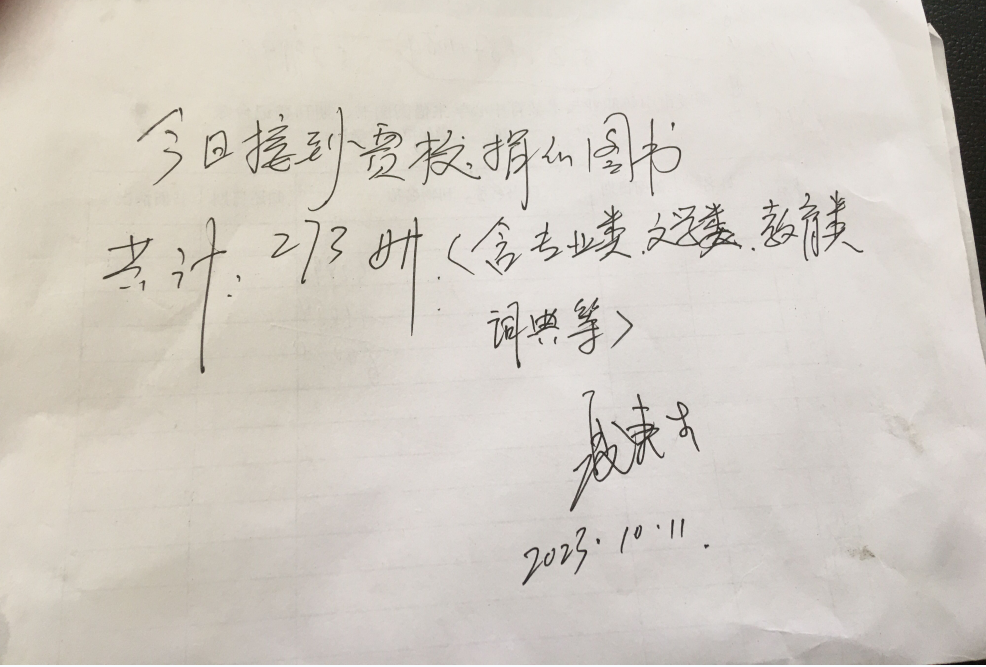 今日接到贾校捐的图书
共计:273册.(含专业类、文学类、教育类
词典等)
2023.10.11.